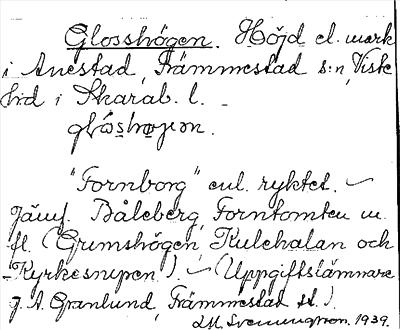 Glosshögen. Höjd el. mark
i Anestad, Främmestad s:n, Viste
hd i Skarab. l. –
glåshøjen.
"Fornborg" enl. ryktet. –
Jämf. Båleberg, Forntomten m.
fl. (Grimshögen, Kulehalan och
Kyrkesnipen). – (Uppgiftslämnare
J. A. Granlund, Främmestad st.).
Svenungsson. 1939.